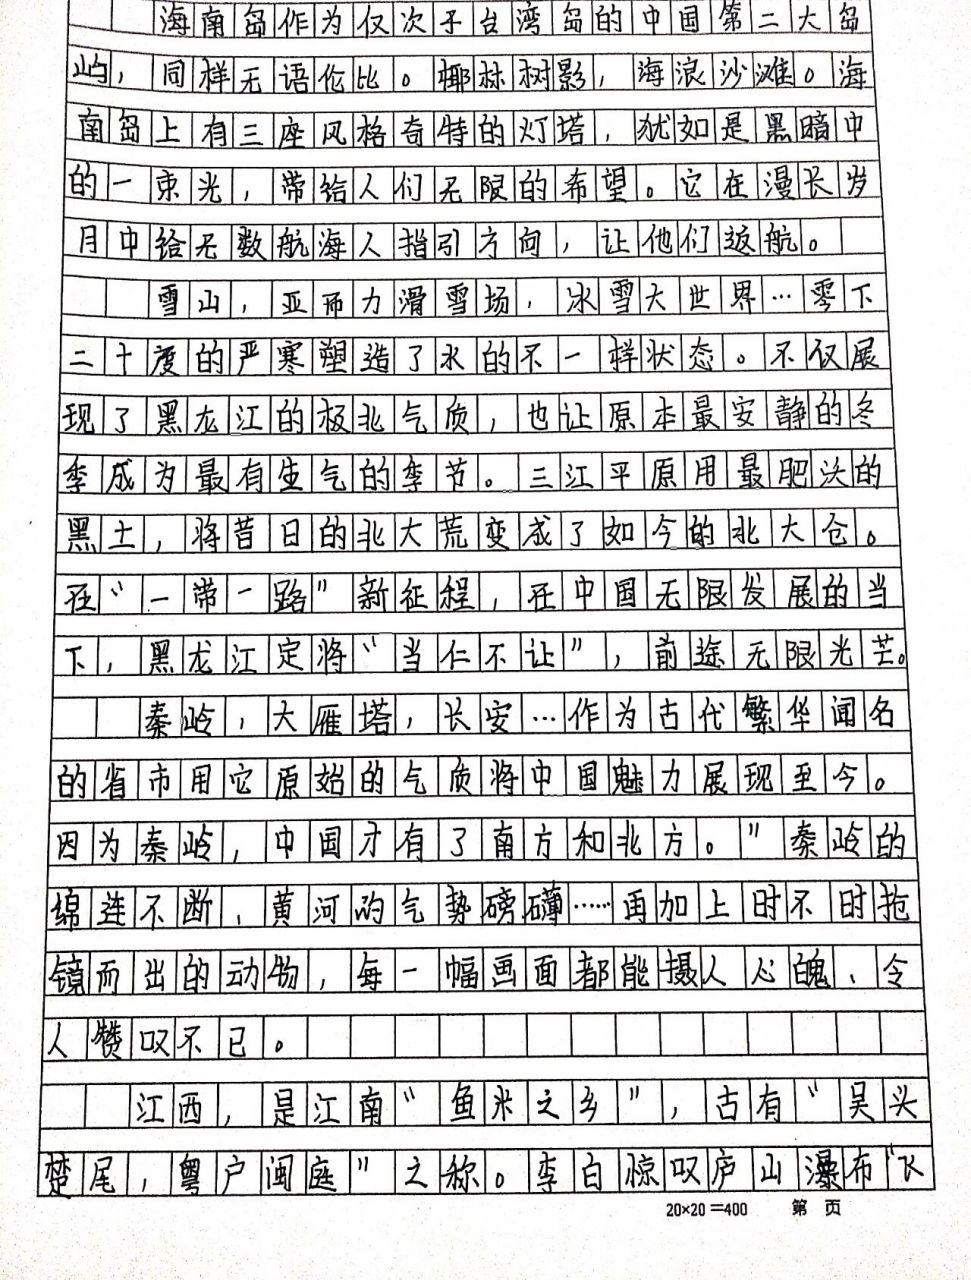 海南岛作为仅次于台湾岛的中国第二大岛
屿，同样无语伦比。椰林树影，海浪沙滩。海
南岛上有三座风格奇特的灯塔，犹如是黑暗中
的一束光，带给人们无限的希望。它在漫长岁
月中给无数航海人指引方向，让他们返航。
雪山，亚布力滑雪场，冰雪大世界…零下
二十度的严寒塑造了水的不一样状态。不仅展
现了黑龙江的极北气质，也让原本最安静的冬
季成为最有生气的季节。三江平原用最肥沃的
黑土，将昔日的北大荒变成了如今的北大仓。
在“一带一路”新征程，在中国无限发展的当
下，黑龙江定将“当仁不让”，前途无限光芒。
秦岭，大雁塔，长安…作为古代繁华闻名
的省市用它原始的气质将中国魅力展现至今。
因为秦岭，中国才有了南方和北方。”秦岭的
绵连不断，黄河的气势磅礴……再加上时不时抢
镜而出的动物，每一幅画面都能摄人心魄、令
人赞叹不已。
江西，是江南“鱼米之乡”，古有“吴头
楚尾，粤户闽庭”之称。李白惊叹庐山瀑布“飞
20×20=400 第 页